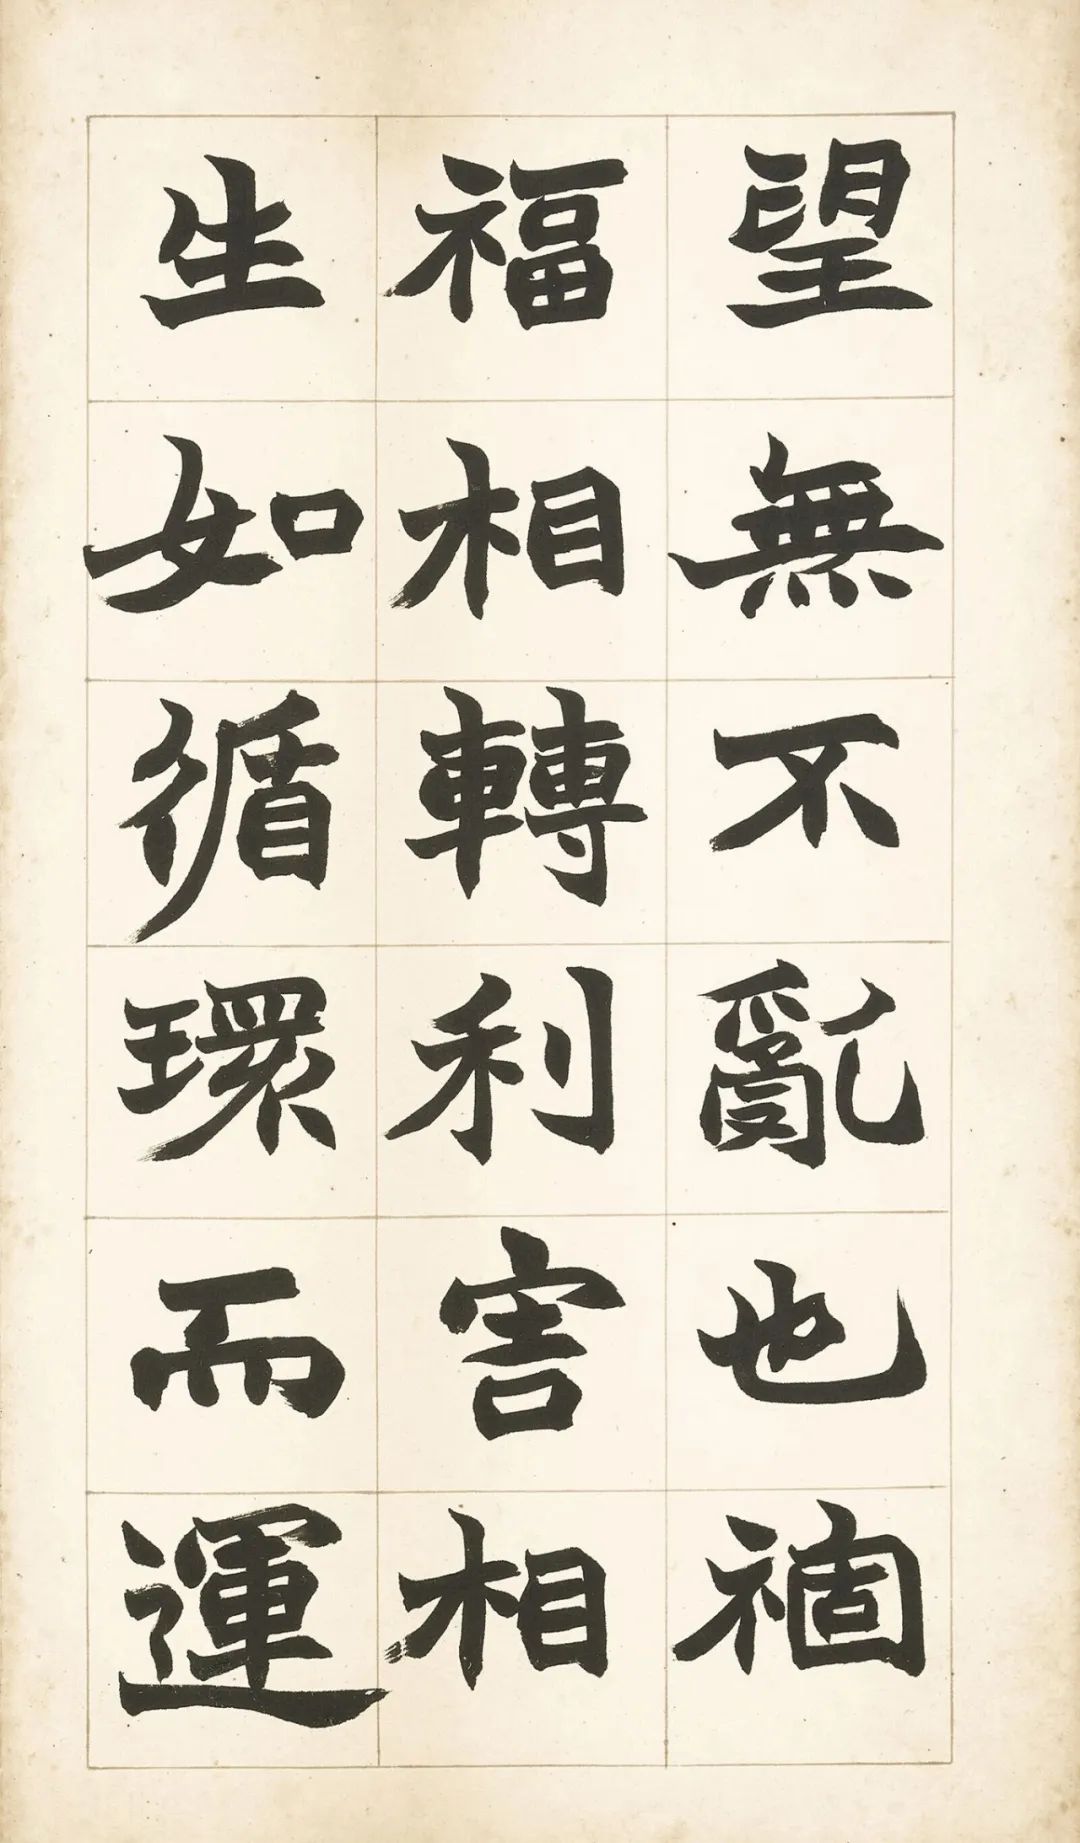 望無不亂也祻
福相轉利害相
生如循環而運